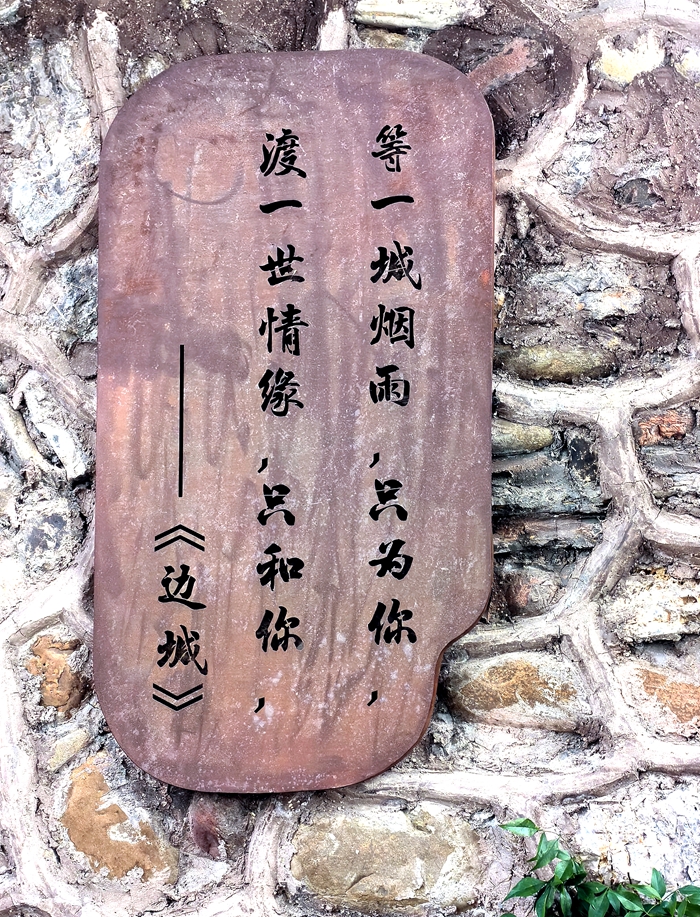 等一城烟雨,只为你,
渡一世情缘,只和你,
——《边城》